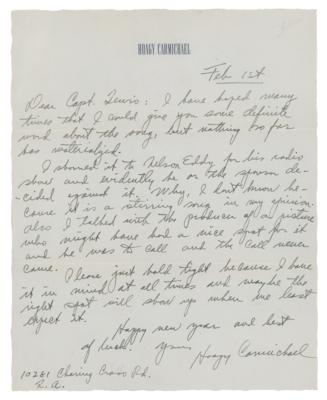 HOAGY CARMICHAEL
Feb 1st
Dear Capt. Lewis: I have hoped many
times that I could give you some definite
word about the song, but nothing so far
has materialized.
I showed it to Nelson Eddy for his radio
show and evidently he or the sponsor de-
cided against it. Why, I don't know be-
cause it is a stirring song in my opinion.
Also I talked with the producer of a picture
who might have had a nice spot for it
and he was to call and the call never
came.
Please just hold tight because I have
it in mind at all times and maybe the
right spot will show up when we least
expect it.
Happy new year and best
of luck. Yours
Hoagy Carmichael
10281 Charing Cross Rd.
L.A.